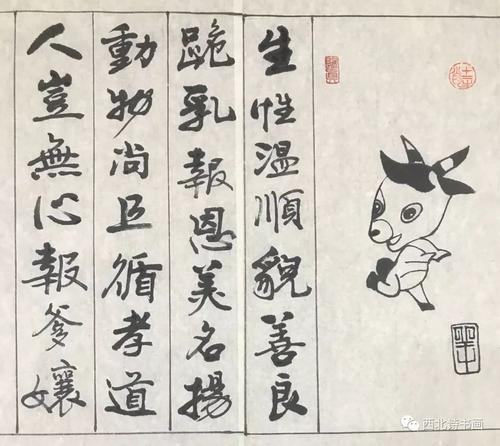 生性温順貌善良
跪乳報恩美名揚
動物尚且循孝道
人豈無心報爹孃
西北诗书画